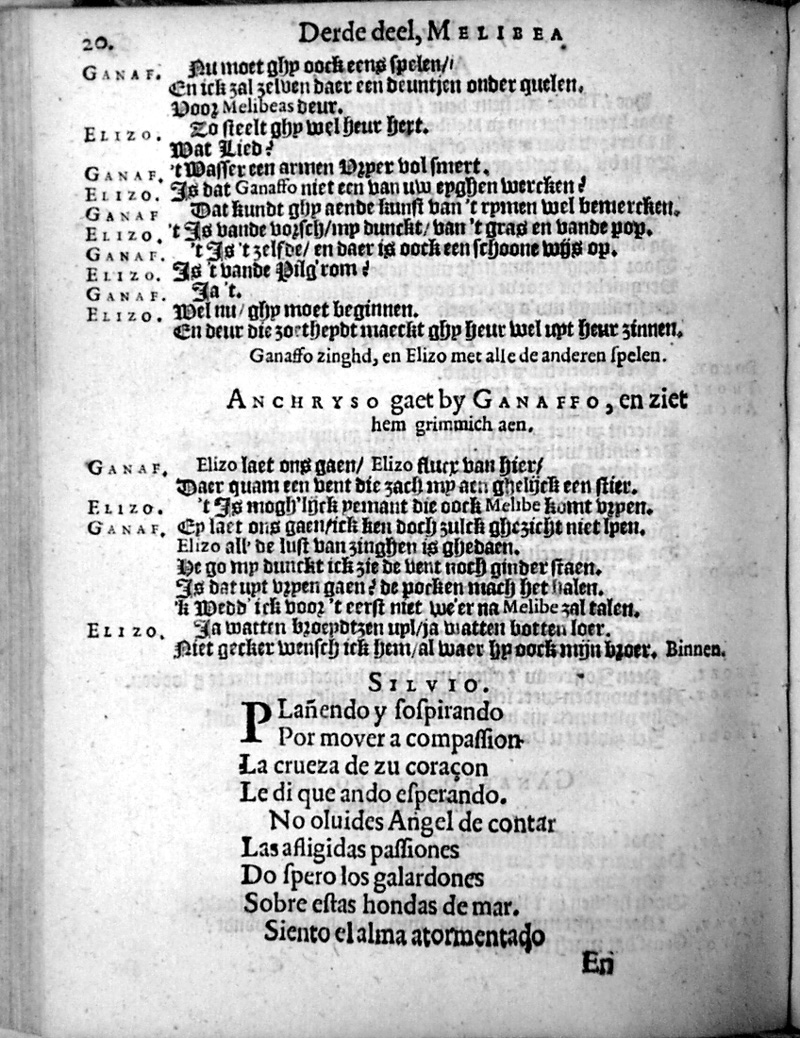 20. Derde deel, MELIBEA
GANAF. Nu moet ghy oock eens spelen/
En ick zal zelven daer een deuntjen onder quelen.
Voor Melibeas deur.
ELIZO. Zo steelt ghy wel heur hert.
Wat Lied?
GANAF. 't Wasser een armen Vryer vol smert.
ELIZO. Is dat Ganaffo niet een van uw eyghen wercken?
GANAF Dat kundt ghy aende kunst van 't rymen wel bemercken.
ELIZO. 't Is vande vorsch/my dunckt/ van 't gras en vande pop.
GANAF. 't Is 't zelfde/ en daer is oock een schoone wijs op.
ELIZO. Is 't vande Pilg'rom?
GANAF. Ja 't.
ELIZO. Wel nu/ ghy moet beginnen.
En deur die zotheydt maeckt ghy heur wel uyt heur zinnen.
Ganaffo zinghd, en Elizo met alle de anderen spelen.
ANCHRYSO gaet by GANAFFO, en ziet
hem grimmich aen.
GANAF. Elizo laet ons gaen/ Elizo flucx van hier/
Daer quam een vent die zach my aen ghelijck een stier.
ELIZO. 't Is mogh'lijck yemant die oock Melibe komt vryen.
GANAF. Ey laet ons gaen/ick ken doch zulck ghezicht niet lyen.
Elizo all' de lust van zinghen is ghedaen.
He go my dunckt ick zie de vent noch ginder staen.
Is dat uyt vryen gaen? de pocken mach het halen.
'k Wedd' ick voor 't eerst niet we'er na Melibe zal talen.
ELIZO. Ja watten broeydtzen uyl/ja watten botten loer.
Niet gecker wensch ick hem/al waer hy oock mijn broer. Binnen.
SILVIO.
PLañendo y sospirando
Por mover a compassion
La crueza de zu coraçon
Le di que ando esperando.
No oluides Angel de contar
Las afligidas passiones
Do spero los galardones
Sobre estas hondas de mar.
Siento el alma atormentado
En